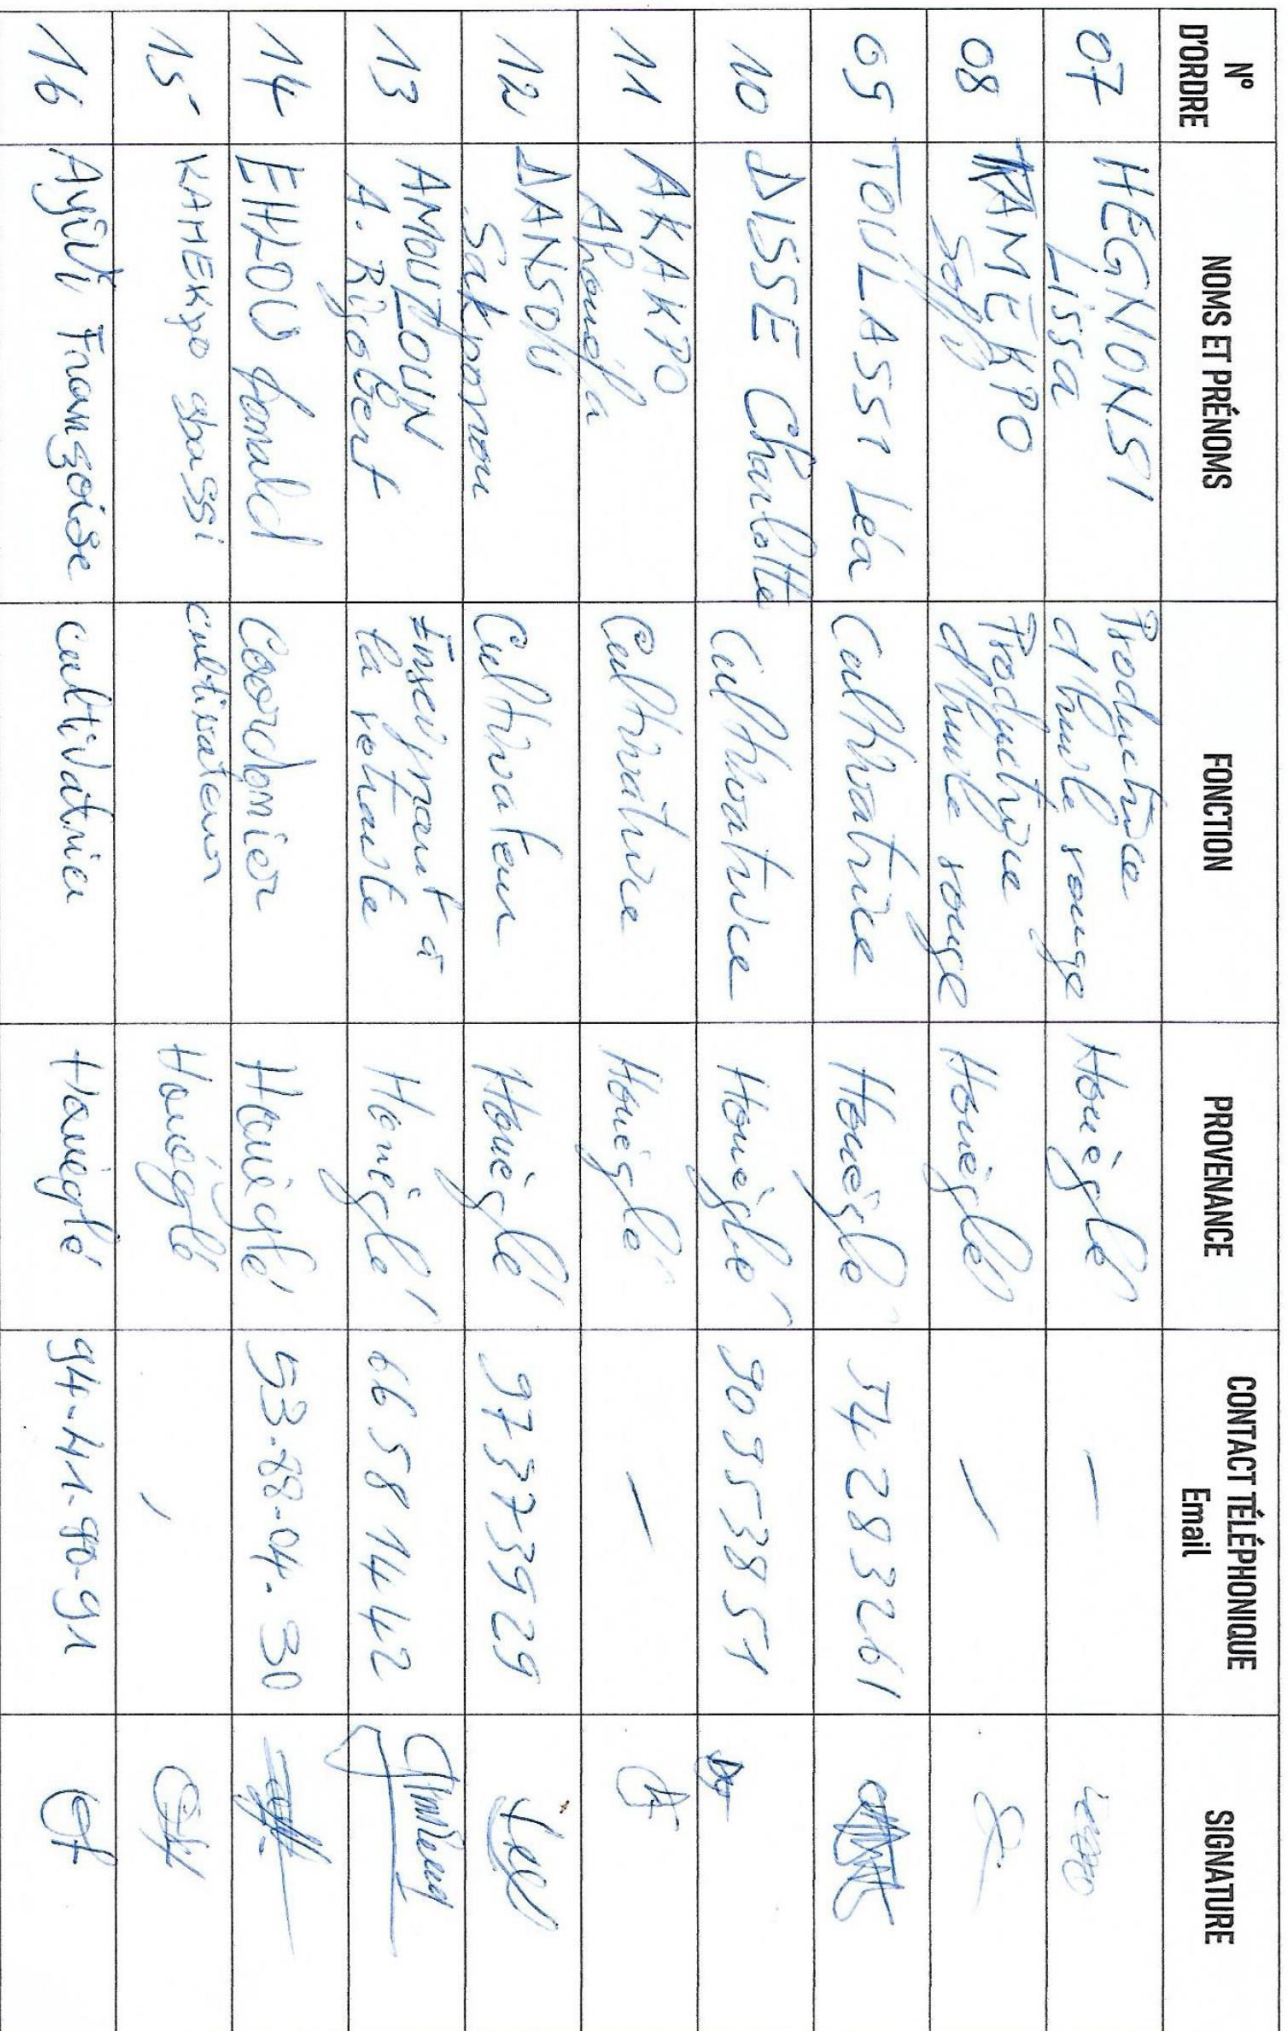 N° D'ORDRE NOMS ET PRÉNOMS FONCTION PROVENANCE CONTACT TÉLÉPHONIQUE Email SIGNATURE
07 HEGNONSI Lissa Productrice d'huile rouge Houèglé —
08 KAMEKPO Productrice d'huile rouge Houèglé —
09 TOVILASSI Léa Cultivatrice Houèglé 54283261
10 DISSE Charlotte Cultivatrice Houèglé 90953851
11 AKAKPO Cultivatrice Houèglé —
12 DANSOU Sakponou Cultivateur Houèglé 97373929
13 AMOUZOUN A. Rigobert Enseignant à la retraite Houèglé 66581442
14 EHLOU donald Coordonier Houèglé 53-88-04-30
15 KAMEKpo gbassi cultivateur Houéglé
16 Ayivi Françoise cultivatrice Houèglé 94-41-90-91